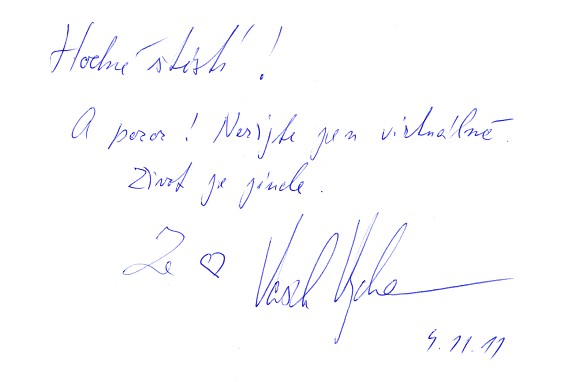 Hodně štěstí!
A pozor! Nežijte jen virtuálně.
Život je jinde.
Ze ♡ Vašek Vydra
4.11.11